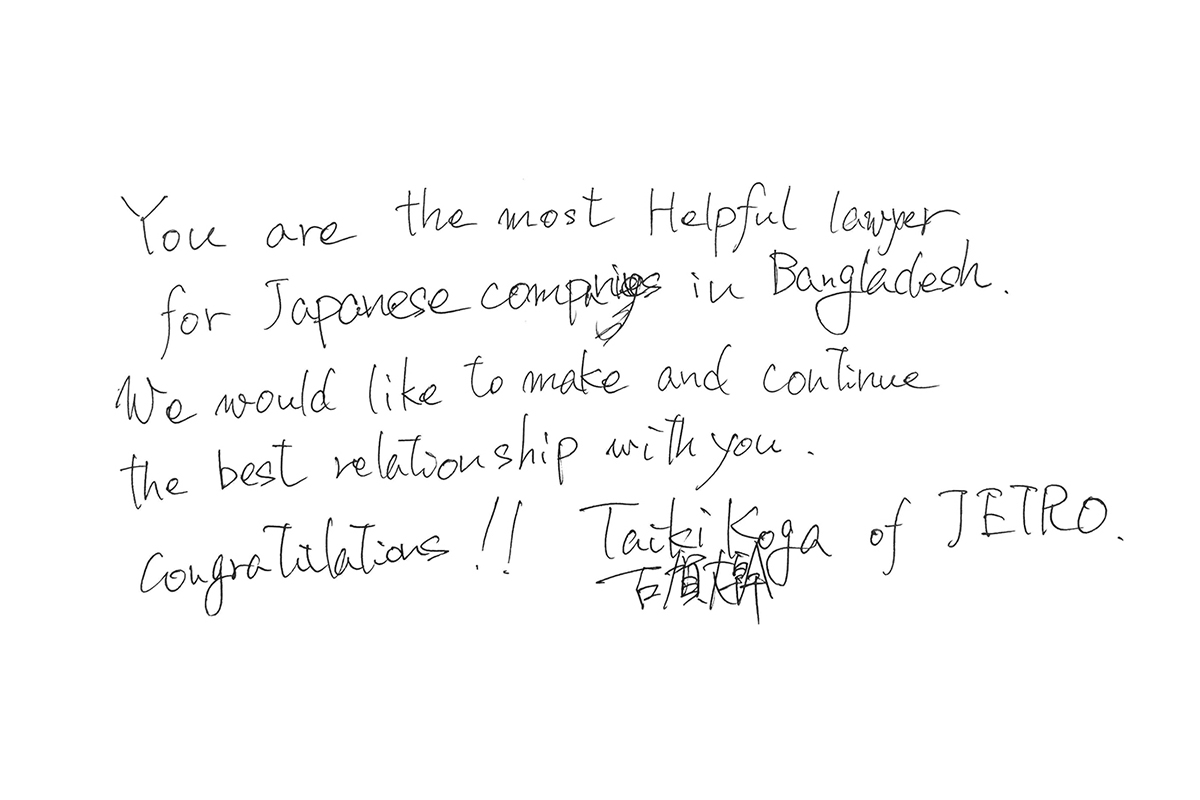 You are the most Helpful lawyer
for Japanese companies in Bangladesh.
We would like to make and continue
the best relationship with you.
congratulations!! Taiki Koga of JETRO.
古賀大幹